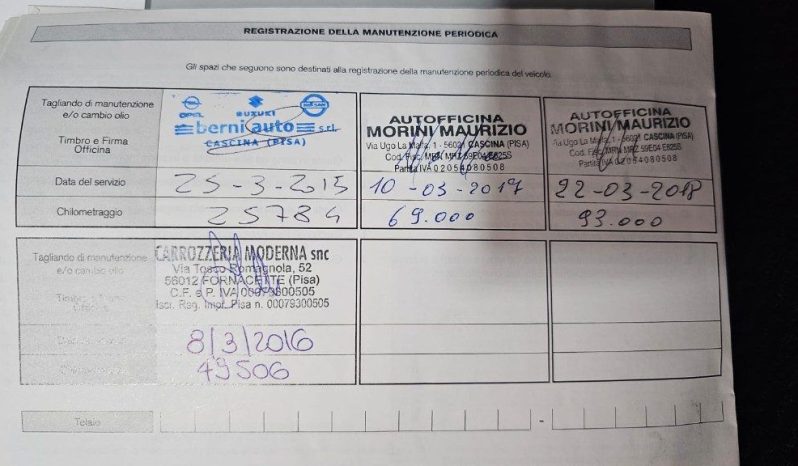 REGISTRAZIONE DELLA MANUTENZIONE PERIODICA
Gli spazi che seguono sono destinati alla registrazione della manutenzione periodica del veicolo.
Tagliando di manutenzione
e/o cambio olio
Timbro e Firma
Officina
OPEL SUZUKI
berni auto s.r.l.
CASCINA (PISA)
AUTOFFICINA
MORINI MAURIZIO
Via Ugo La Malfa, 1 - 56021 CASCINA (PISA)
Cod. Fisc. MRN MRZ 59E04 E625S
Partita IVA 02054080508
AUTOFFICINA
MORINI MAURIZIO
Via Ugo La Malfa, 1 - 56021 CASCINA (PISA)
Cod. Fisc. MRN MRZ 59E04 E625S
Partita IVA 02054080508
Data del servizio 25-3-2015 10-03-2017 22-03-2018
Chilometraggio 25784 69.000 93.000
Tagliando di manutenzione
e/o cambio olio
CARROZZERIA MODERNA snc
Via Tosco Romagnola, 52
56012 FORNACETTE (Pisa)
C.F. e P. IVA 00079300505
Iscr. Reg. Impr. Pisa n. 00079300505
8/3/2016
49506
Telaio